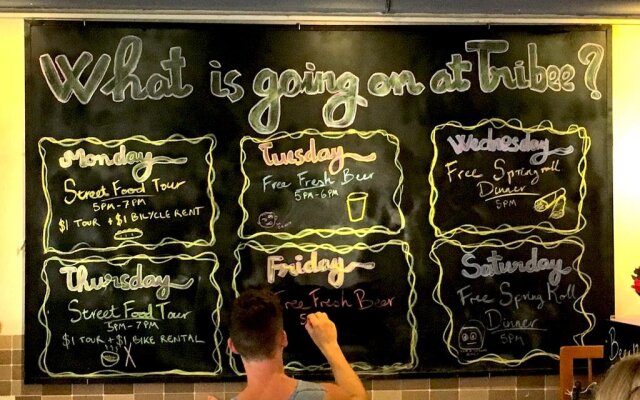 What is going on at Tribee?
Monday
Street Food Tour
5PM-7PM
$1 TOUR + $1 BICYCLE RENT
Tuesday
Free Fresh Beer
5PM-6PM
Wednesday
Free Spring roll
Dinner
5PM
Thursday
Street Food Tour
5PM-7PM
$1 TOUR + $1 BIKE RENTAL
Friday
Free Fresh Beer
Saturday
Free Spring Roll
Dinner
5PM